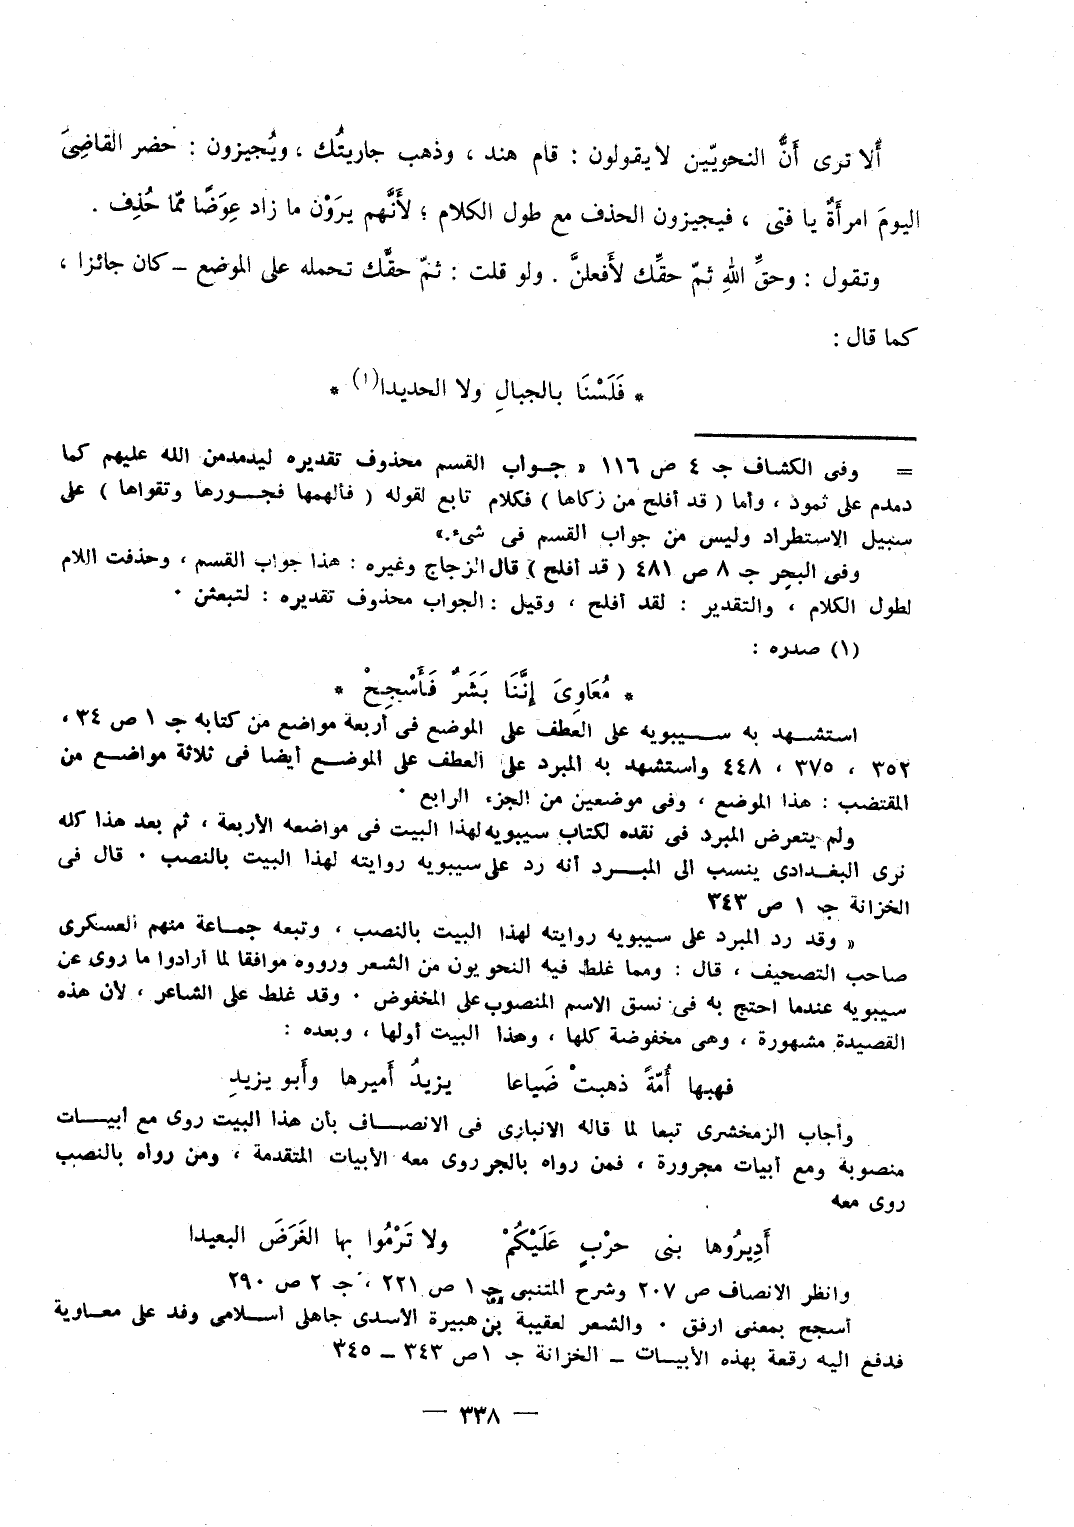 أَلا ترى أَنَّ النحويّين لا يقولون : قام هند ، وذهب جاريتُك ، ويُجيزون : حضر القاضِىَ
اليومَ امرأَةٌ يا فتى ، فيجيزون الحذف مع طول الكلام ؛ لأَنَّهم يرَوْن ما زاد عِوَضًا ممّا حُذِف .
وتقول : وحقِّ اللهِ ثمّ حقِّك لأَفعلنَّ . ولو قلت : ثمّ حقَّك تحمله على الموضع – كان جائزا ،
كما قال :
* فَلَسْنَا بالجبالِ ولا الحديدا(١) *
= وفى الكشاف جـ ٤ ص ١١٦ « جـواب القسم محذوف تقديره ليدمدمن الله عليهم كما
دمدم على ثمود ، وأما ( قد أفلح من زكاها ) فكلام تابع لقوله ( فألهمها فجـورها وتقواها ) على
سبيل الاستطراد وليس من جواب القسم فى شىء.»
وفى البحر جـ ٨ ص ٤٨١ ( قد أفلح ) قال الزجاج وغيره : هذا جواب القسم ، وحذفت اللام
لطول الكلام ، والتقدير : لقد أفلح ، وقيل : الجواب محذوف تقديره : لتبعثن ٠
(١) صدره :
* مُعَاوِىَ إِنَّنَا بَشَرٌ فَأَسْجِحْ *
استشـهد به سـيبويه على العطف على الموضع فى أربعة مواضع من كتابه جـ ١ ص ٣٤ ،
٣٥٢ ، ٣٧٥ ، ٤٤٨ واستشهد به المبرد على العطف على الموضـع أيضا فى ثلاثة مواضـع من
المقتضب : هذا الموضع ، وفى موضعين من الجزء الرابع ٠
ولم يتعرض المبرد فى نقده لكتاب سيبويه لهذا البيت فى مواضعه الأربعة ، ثم بعد هذا كله
نرى البغـدادى ينسب الى المبـرد أنه رد على سيبويه روايته لهذا البيت بالنصب ٠ قال فى
الخزانة جـ ١ ص ٣٤٣
« وقد رد المبرد على سيبويه روايته لهذا البيت بالنصب ، وتبعه جمـاعة منهم العسكرى
صاحب التصحيف ، قال : ومما غلط فيه النحويون من الشعر ورووه موافقا لما أرادوا ما روى عن
سيبويه عندما احتج به فى نسق الاسم المنصوب على المخفوض ٠ وقد غلط على الشاعر ، لأن هذه
القصيدة مشهورة ، وهى مخفوضة كلها ، وهذا البيت أولها ، وبعده :
فهبها أُمّةً ذهبتْ ضَياعا يزيدُ أَميرها وأَبو يزيدِ
وأجاب الزمخشرى تبعا لما قاله الانبارى فى الانصـاف بأن هذا البيت روى مع أبيـات
منصوبة ومع أبيات مجرورة ، فمن رواه بالجر روى معه الأبيات المتقدمة ، ومن رواه بالنصب
روى معه
أَدِيرُوها بنى حرْبٍ عَلَيْكُمْ ولا تَرْمُوا بها الغَرَضَ البعيدا
وانظر الانصاف ص ٢٠٧ وشرح المتنبى جـ ١ ص ٢٢١ ، جـ ٢ ص ٢٩٠
أسجح بمعنى ارفق ٠ والشعر لعقيبة بن هبيرة الأسدى جاهلى اسـلامى وفد على معـاوية
فدفع اليه رقعة بهذه الأبيـات – الخزانة جـ ١ ص ٣٤٣ – ٣٤٥
— ٣٣٨ —